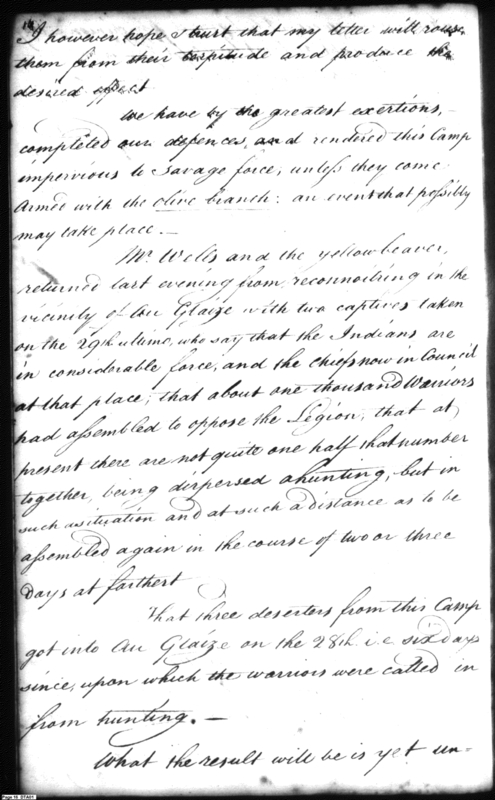 I however hope & trust that my letter will rouse
them from their torpitude and produce the
desired effect
We have by the greatest exertions, -
completed our defences, and rendered this Camp
impervious to Savage force, unless they come
Armed with the olive branch: an event that possibly
may take place. -
Mr. Wells and the yellow beaver,
returned last evening from reconnoitring in the
vicinity of Au Glaize with two captives taken
on the 29th ultimo, who say that the Indians are
in considerable force, and the chiefs now in Council
at that place; that about one thousand Warriors
had assembled to oppose the Legion, that at
present there are not quite one half that number
together, being dispersed a hunting, but in
such a situation and at such a distance as to be
assembled again in the course of two or three
days at farthest
That three deserters from this Camp
got into Au Glaize on the 28th i.e. six days
since, upon which the warriors were called in
from hunting. -
What the result will be is yet un-